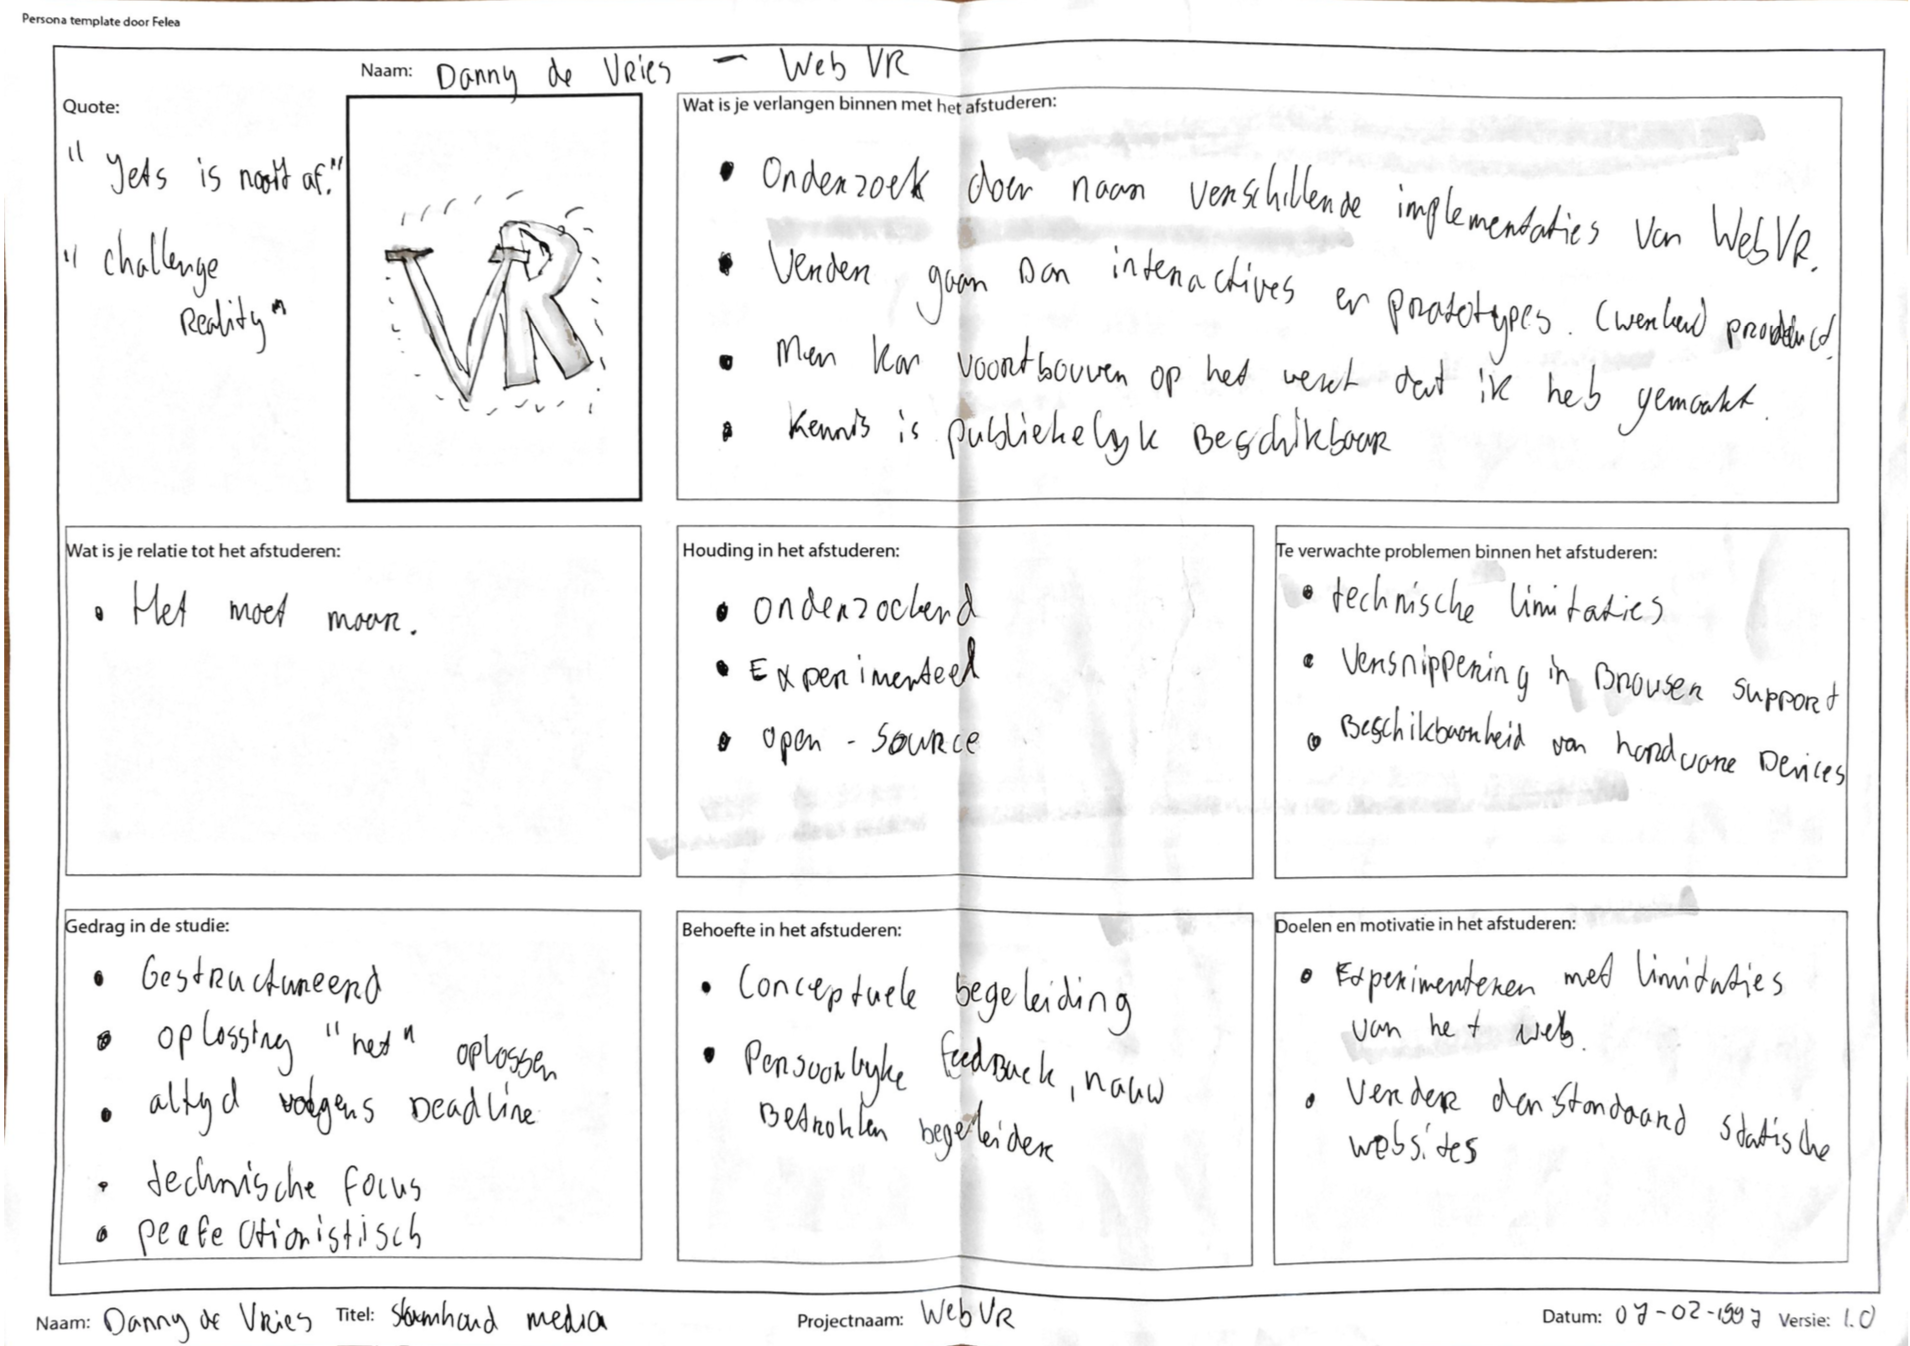 Persona template door Felea
Naam: Danny de Vries - Web VR
Quote:
"Iets is nooit af."
"challenge
Reality"
VR
Wat is je verlangen binnen met het afstuderen:
• Onderzoek doen naar verschillende implementaties van WebVR.
• Verder gaan Dan interactives en prototypes. (werkend product)
• Men kan voortbouwen op het werk dat ik heb gemaakt.
• Kennis is publiekelijk Beschikbaar
Wat is je relatie tot het afstuderen:
• Het moet maar.
Houding in het afstuderen:
• onderzoekend
• Experimenteel
• open - source
Te verwachte problemen binnen het afstuderen:
• technische limitaties
• Versnippering in Browser support
• Beschikbaarheid van hardware Devices
Gedrag in de studie:
• Gestructureerd
• oplossing "net" oplossen
• altijd volgens Deadline
• technische focus
• perfectionistisch
Behoefte in het afstuderen:
• Conceptuele begeleiding
• Persoonlijke feedback, nauw
Betrokken begeleider
Doelen en motivatie in het afstuderen:
• Experimenteren met limitaties
van het web.
• Verder dan standaard statische
websites
Naam: Danny de Vries Titel: media
Projectnaam: WebVR
Datum: 07-02-1997 Versie: 1.0